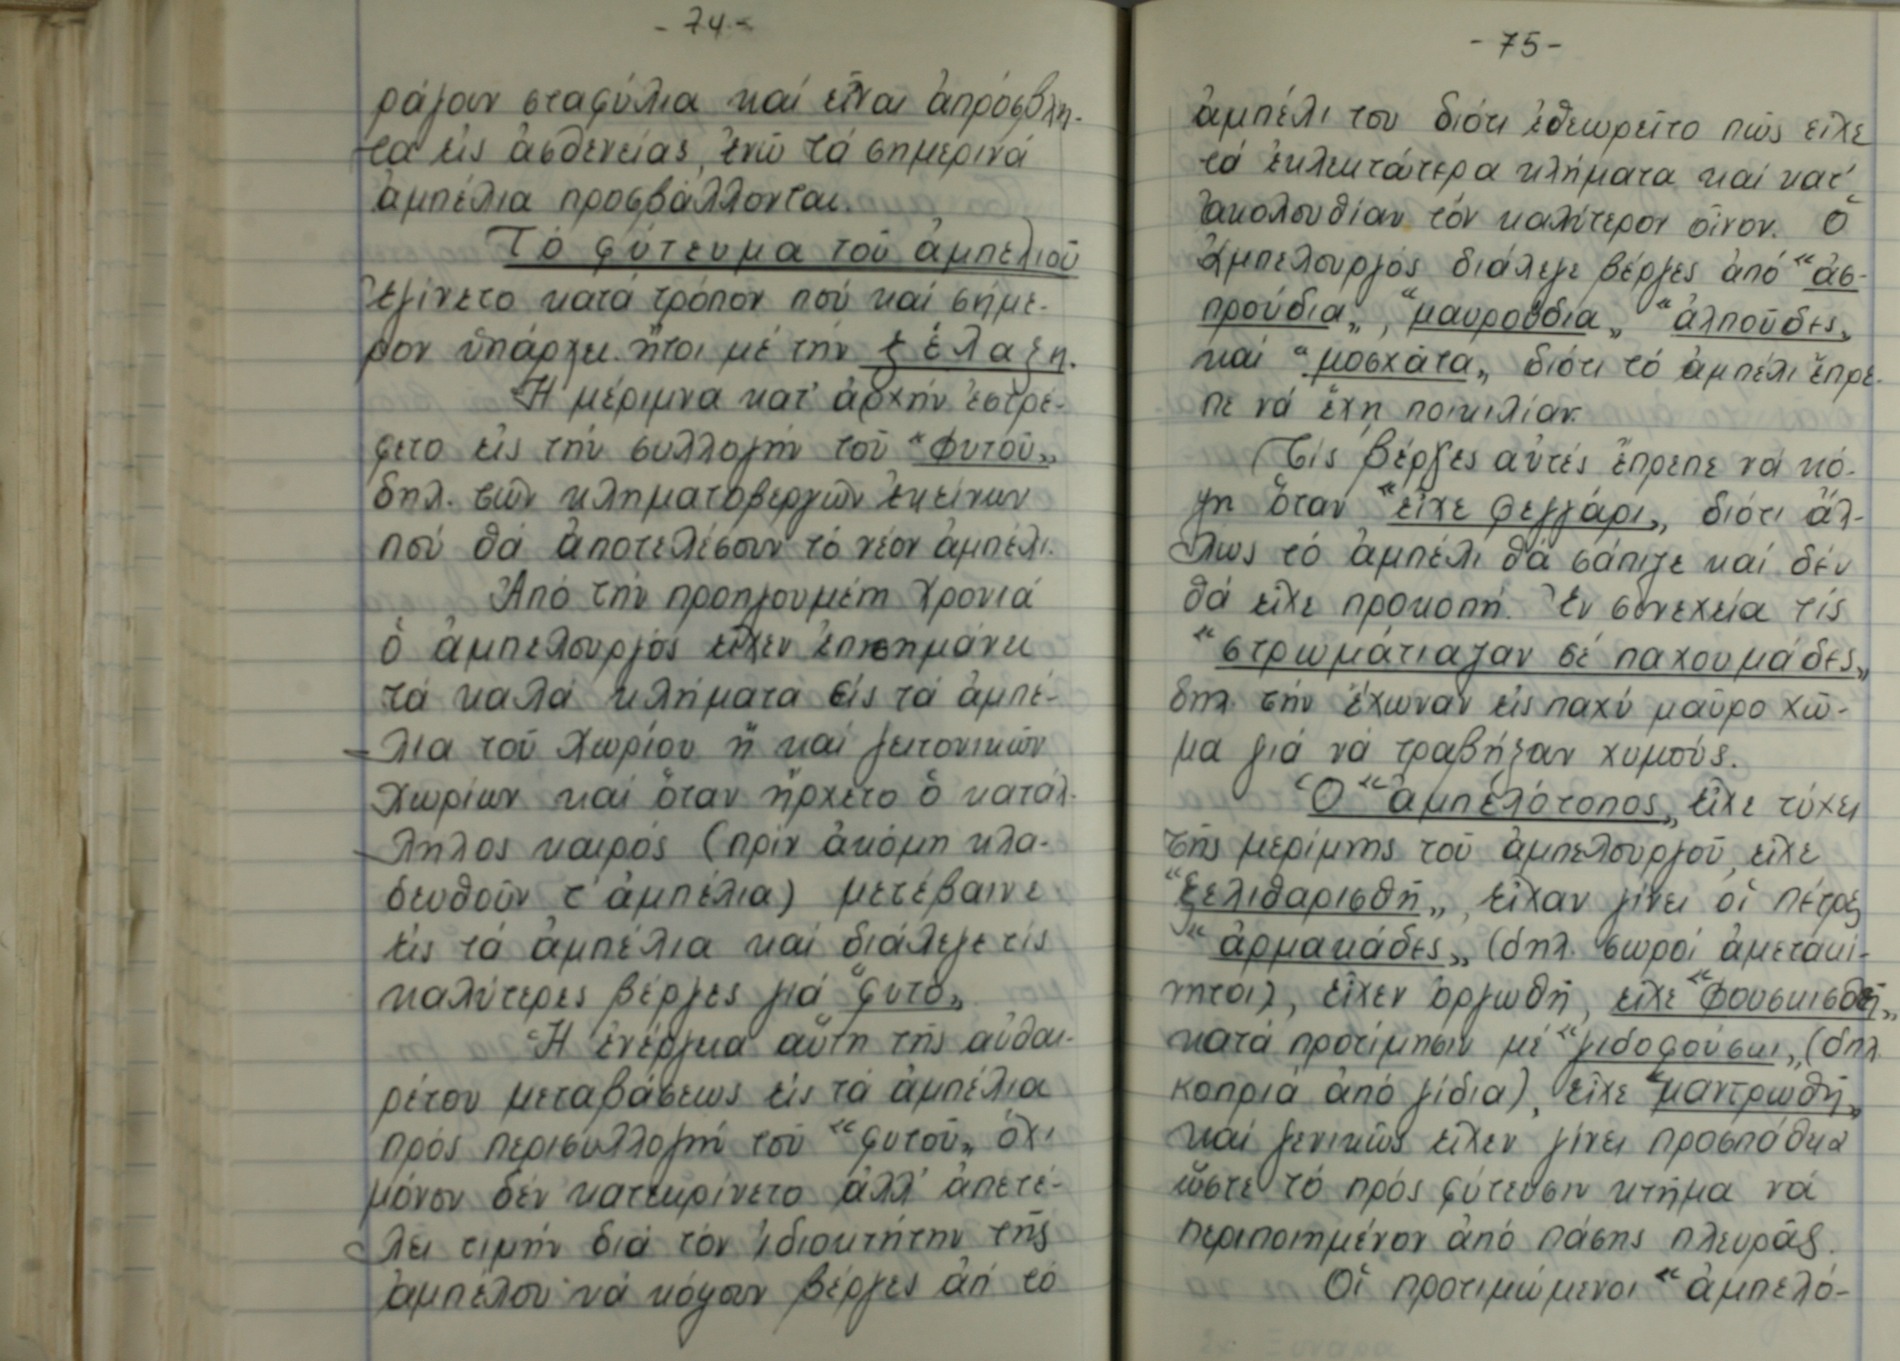 - 74 -
ράγουν σταφύλια καί εἶναι ἀπρόσβλη-
τα εἰς ἀσθενείας, ἐνῶ τά σημερινά
ἀμπέλια προσβάλλονται.
Τό φύτευμα τοῦ ἀμπελιοῦ
ἐγίνετο κατά τρόπον πού καί σήμε-
ρον ὑπάρχει ἤτοι μέ τήν ξέλαση.
Ἡ μέριμνα κατ' ἀρχήν ἐστρέ-
φετο εἰς τήν συλλογήν τοῦ "φυτοῦ„
δηλ. τῶν κληματοβεργῶν ἐκείνων
πού θά ἀποτελέσουν τό νέον ἀμπέλι.
Ἀπό τήν προηγουμένη χρονιά
ὁ ἀμπελουργός εἶχεν ἐπισημάνει
τά καλά κλήματα εἰς τά ἀμπέ-
λια τοῦ χωρίου ἤ καί γειτονικῶν
χωρίων καί ὅταν ἤρχετο ὁ κατάλ-
ληλος καιρός (πρίν ἀκόμη κλα-
δευθοῦν τ' ἀμπέλια) μετέβαινε
εἰς τά ἀμπέλια καί διάλεγε τίς
καλύτερες βέργες γιά "φυτό„
Ἡ ἐνέργεια αὕτη τῆς αὐθαι-
ρέτου μεταβάσεως εἰς τά ἀμπέλια
πρός περισυλλογή τοῦ "φυτοῦ„ ὄχι
μόνον δέν κατεκρίνετο ἀλλ' ἀπετέ-
λει τιμήν διά τόν ἰδιοκτήτην τῆς
ἀμπέλου νά κόψουν βέργες ἀπ τό
- 75 -
ἀμπέλι του διότι ἐθεωρεῖτο πώς εἶχε
τά ἐκλεκτώτερα κλήματα καί κατ'
ἀκολουθίαν τόν καλύτερον οἶνον. Ὁ
Ἀμπελουργός διάλεγε βέργες ἀπό "ἀσ-
προύδια„, "μαυρούδια„ "ἀλποῦδες„
καί "μοσχάτα„ διότι τό ἀμπέλι ἔπρε-
πε νά ἔχη ποικιλίαν.
Τίς βέργες αὐτές ἔπρεπε νά κό-
ψη ὅταν "εἶχε φεγγάρι„ διότι ἄλ-
λως τό ἀμπέλι θά σάπιζε καί δέν
θά εἶχε προκοπή. Ἐν συνεχεία τίς
"στρωμάτιαζαν σέ παχουμάδες„
δηλ. τήν ἔχωναν εἰς παχύ μαῦρο χῶ-
μα γιά νά τραβήξαν χυμούς.
Ὁ "ἀμπελότοπος„ εἶχε τύχει
τῆς μερίμνης τοῦ ἀμπελουργοῦ, εἶχε
"ξελιθαρισθῆ„, εἶχαν γίνει οἱ πέτρες
"ἀρμακάδες„ (δηλ. σωροί ἀμετακί-
νητοι), εἶχεν ὀργωθῆ, εἶχε "φουσκισθῆ„
κατά προτίμησιν μέ "γιδοφούσκι„ (δηλ
κοπριά ἀπό γίδια), εἶχε "μαντρωθῆ„
καί γενικῶς εἶχεν γίνει προσπάθεια
ὥστε τό πρός φύτευσιν κτῆμα νά
περιποιημένον ἀπό πάσης πλευρᾶς.
Οἱ προτιμώμενοι "ἀμπελό-